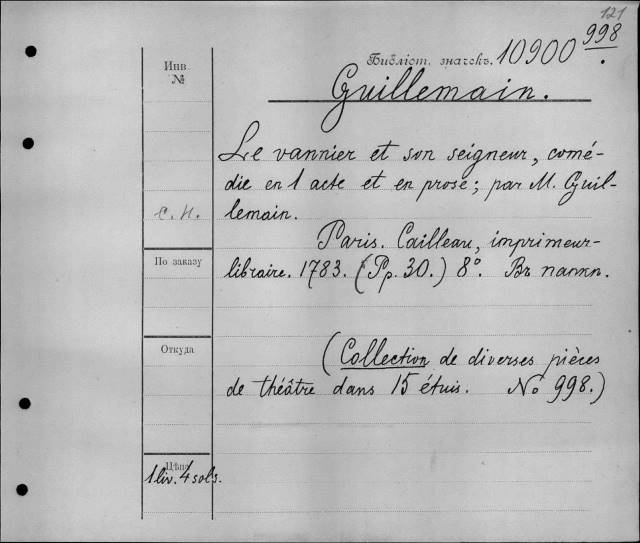 121
Инв.
№
Библіот. значекъ. 10900 998.
Guillemain.
Le vannier et son seigneur, comé-
die en 1 acte et en prose; par M. Guil-
с. п. lemain.
Paris. Cailleau, imprimeur-
По заказу libraire. 1783. (Pp. 30.) 8°. Въ папкѣ.
Откуда (Collection de diverses pièces
de théâtre dans 15 étuis. No 998.)
Цѣна
1 liv. 4 sols.